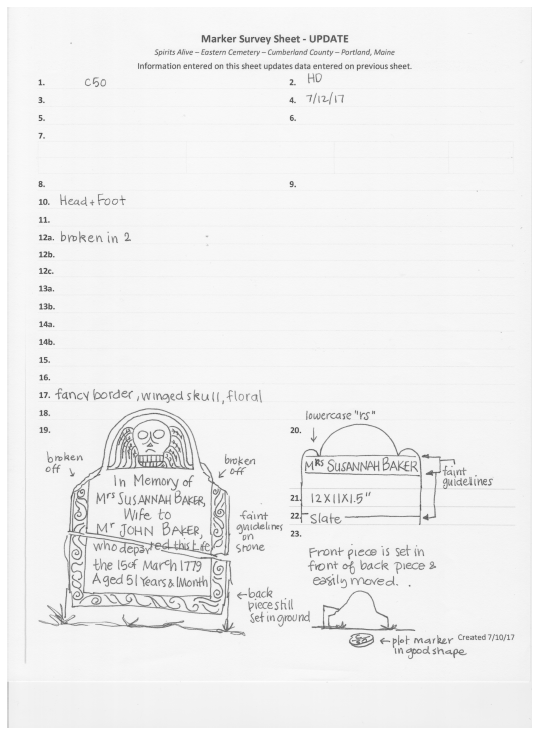 Marker Survey Sheet - UPDATE
Spirits Alive – Eastern Cemetery – Cumberland County – Portland, Maine
Information entered on this sheet updates data entered on previous sheet.
1. C50
2. HD
3.
4. 7/12/17
5.
6.
7.
8.
9.
10. Head + Foot
11.
12a. broken in 2
12b.
12c.
13a.
13b.
14a.
14b.
15.
16.
17. fancy border, winged skull, floral
18.
19.
broken
off
broken
off
In Memory of
Mrs SUSANNAH BAKER,
Wife to
Mr JOHN BAKER,
who departed this Life
the 15 of March 1779
Aged 51 Years & 1 Month
faint
guidelines
on
stone
← back
piece still
set in ground
lowercase "rs"
20.
MRS SUSANNAH BAKER
faint
guidelines
21. 12X11X1.5"
22. Slate
23.
Front piece is set in
front of back piece &
easily moved. .
← plot marker
in good shape
Created 7/10/17